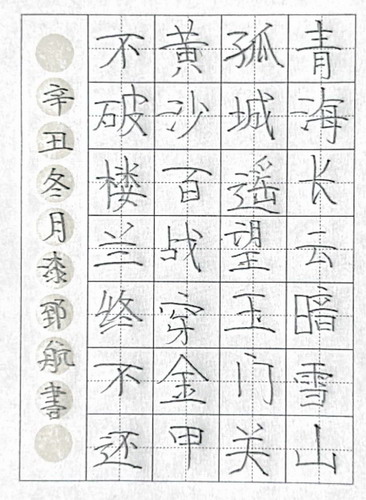 青海长云暗雪山
孤城遥望玉门关
黄沙百战穿金甲
不破楼兰终不还
辛丑冬月航書